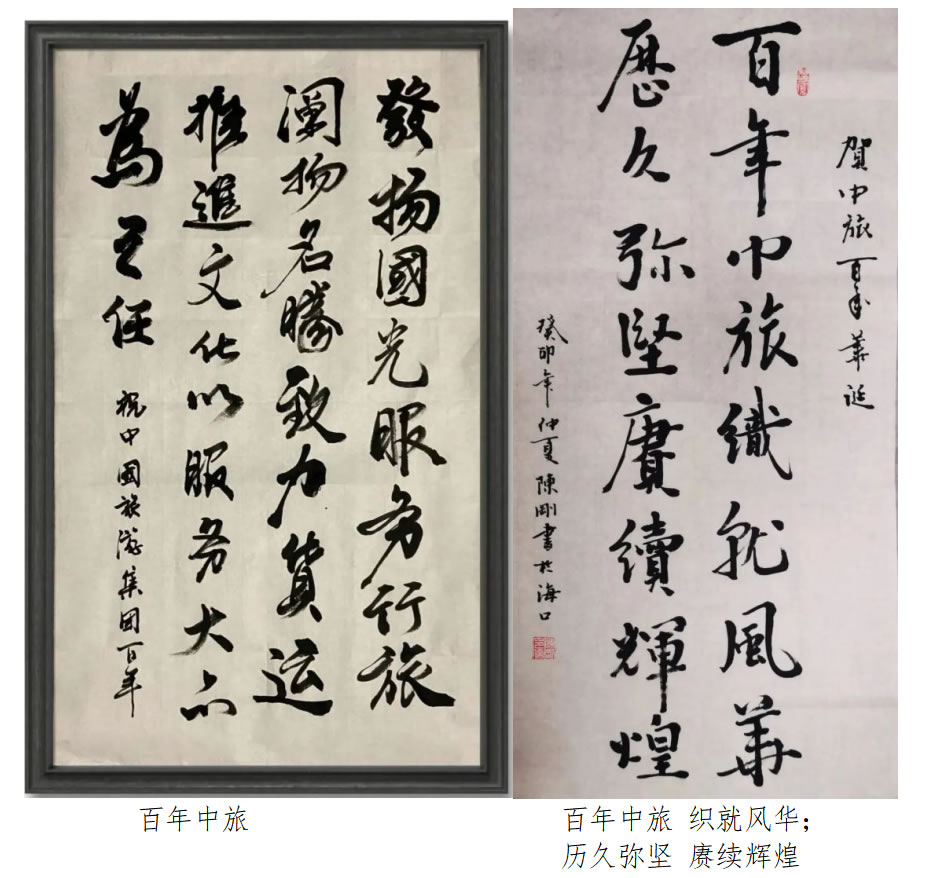 發揚國光服务行旅
阐扬名勝致力貨运
推進文化以服务大众
為己任
祝中國旅游集团百年
賀中旅百年華誕
百年中旅織就風華
歷久弥堅賡續輝煌
癸卯年仲夏陳剛書於海口
百年中旅
百年中旅 织就风华；
历久弥坚 赓续辉煌